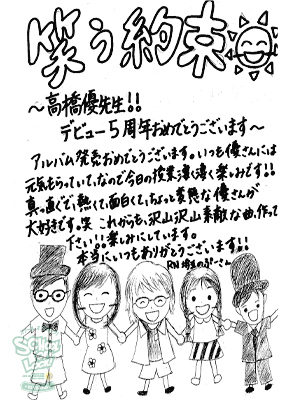 笑う約束
～高橋優先生!!
デビュー5周年おめでとうございます～
アルバム発売おめでとうございます。いつも優さんには
元気もらっていて、なので今日の授業凄く凄く楽しみです!!
真っ直ぐで、熱くて、面白くて、ちょっと変態な優さんが
大好きです。笑 これからも、沢山沢山素敵な曲、作って
下さい!!楽しみにしています。
本当にいつもありがとうございます!!
RN 埼玉のぷーさん